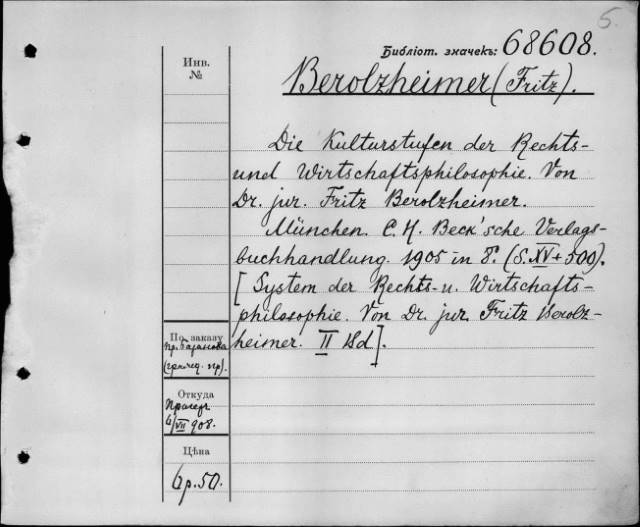 5.
Библіот. значекъ: 68608.
Инв.
№
Berolzheimer (Fritz).
Die Kulturstufen der Rechts-
und Wirtschaftsphilosophie. Von
Dr. jur. Fritz Berolzheimer.
München. C. H. Beck'sche Verlags-
buchhandlung. 1905 in 8°. (S. XV + 500).
[System der Rechts- u. Wirtschafts-
philosophie. Von Dr. jur. Fritz Berolz-
heimer. II Bd].
По заказу
пр.
Откуда
/VII 908.
Цѣна
6р.50.